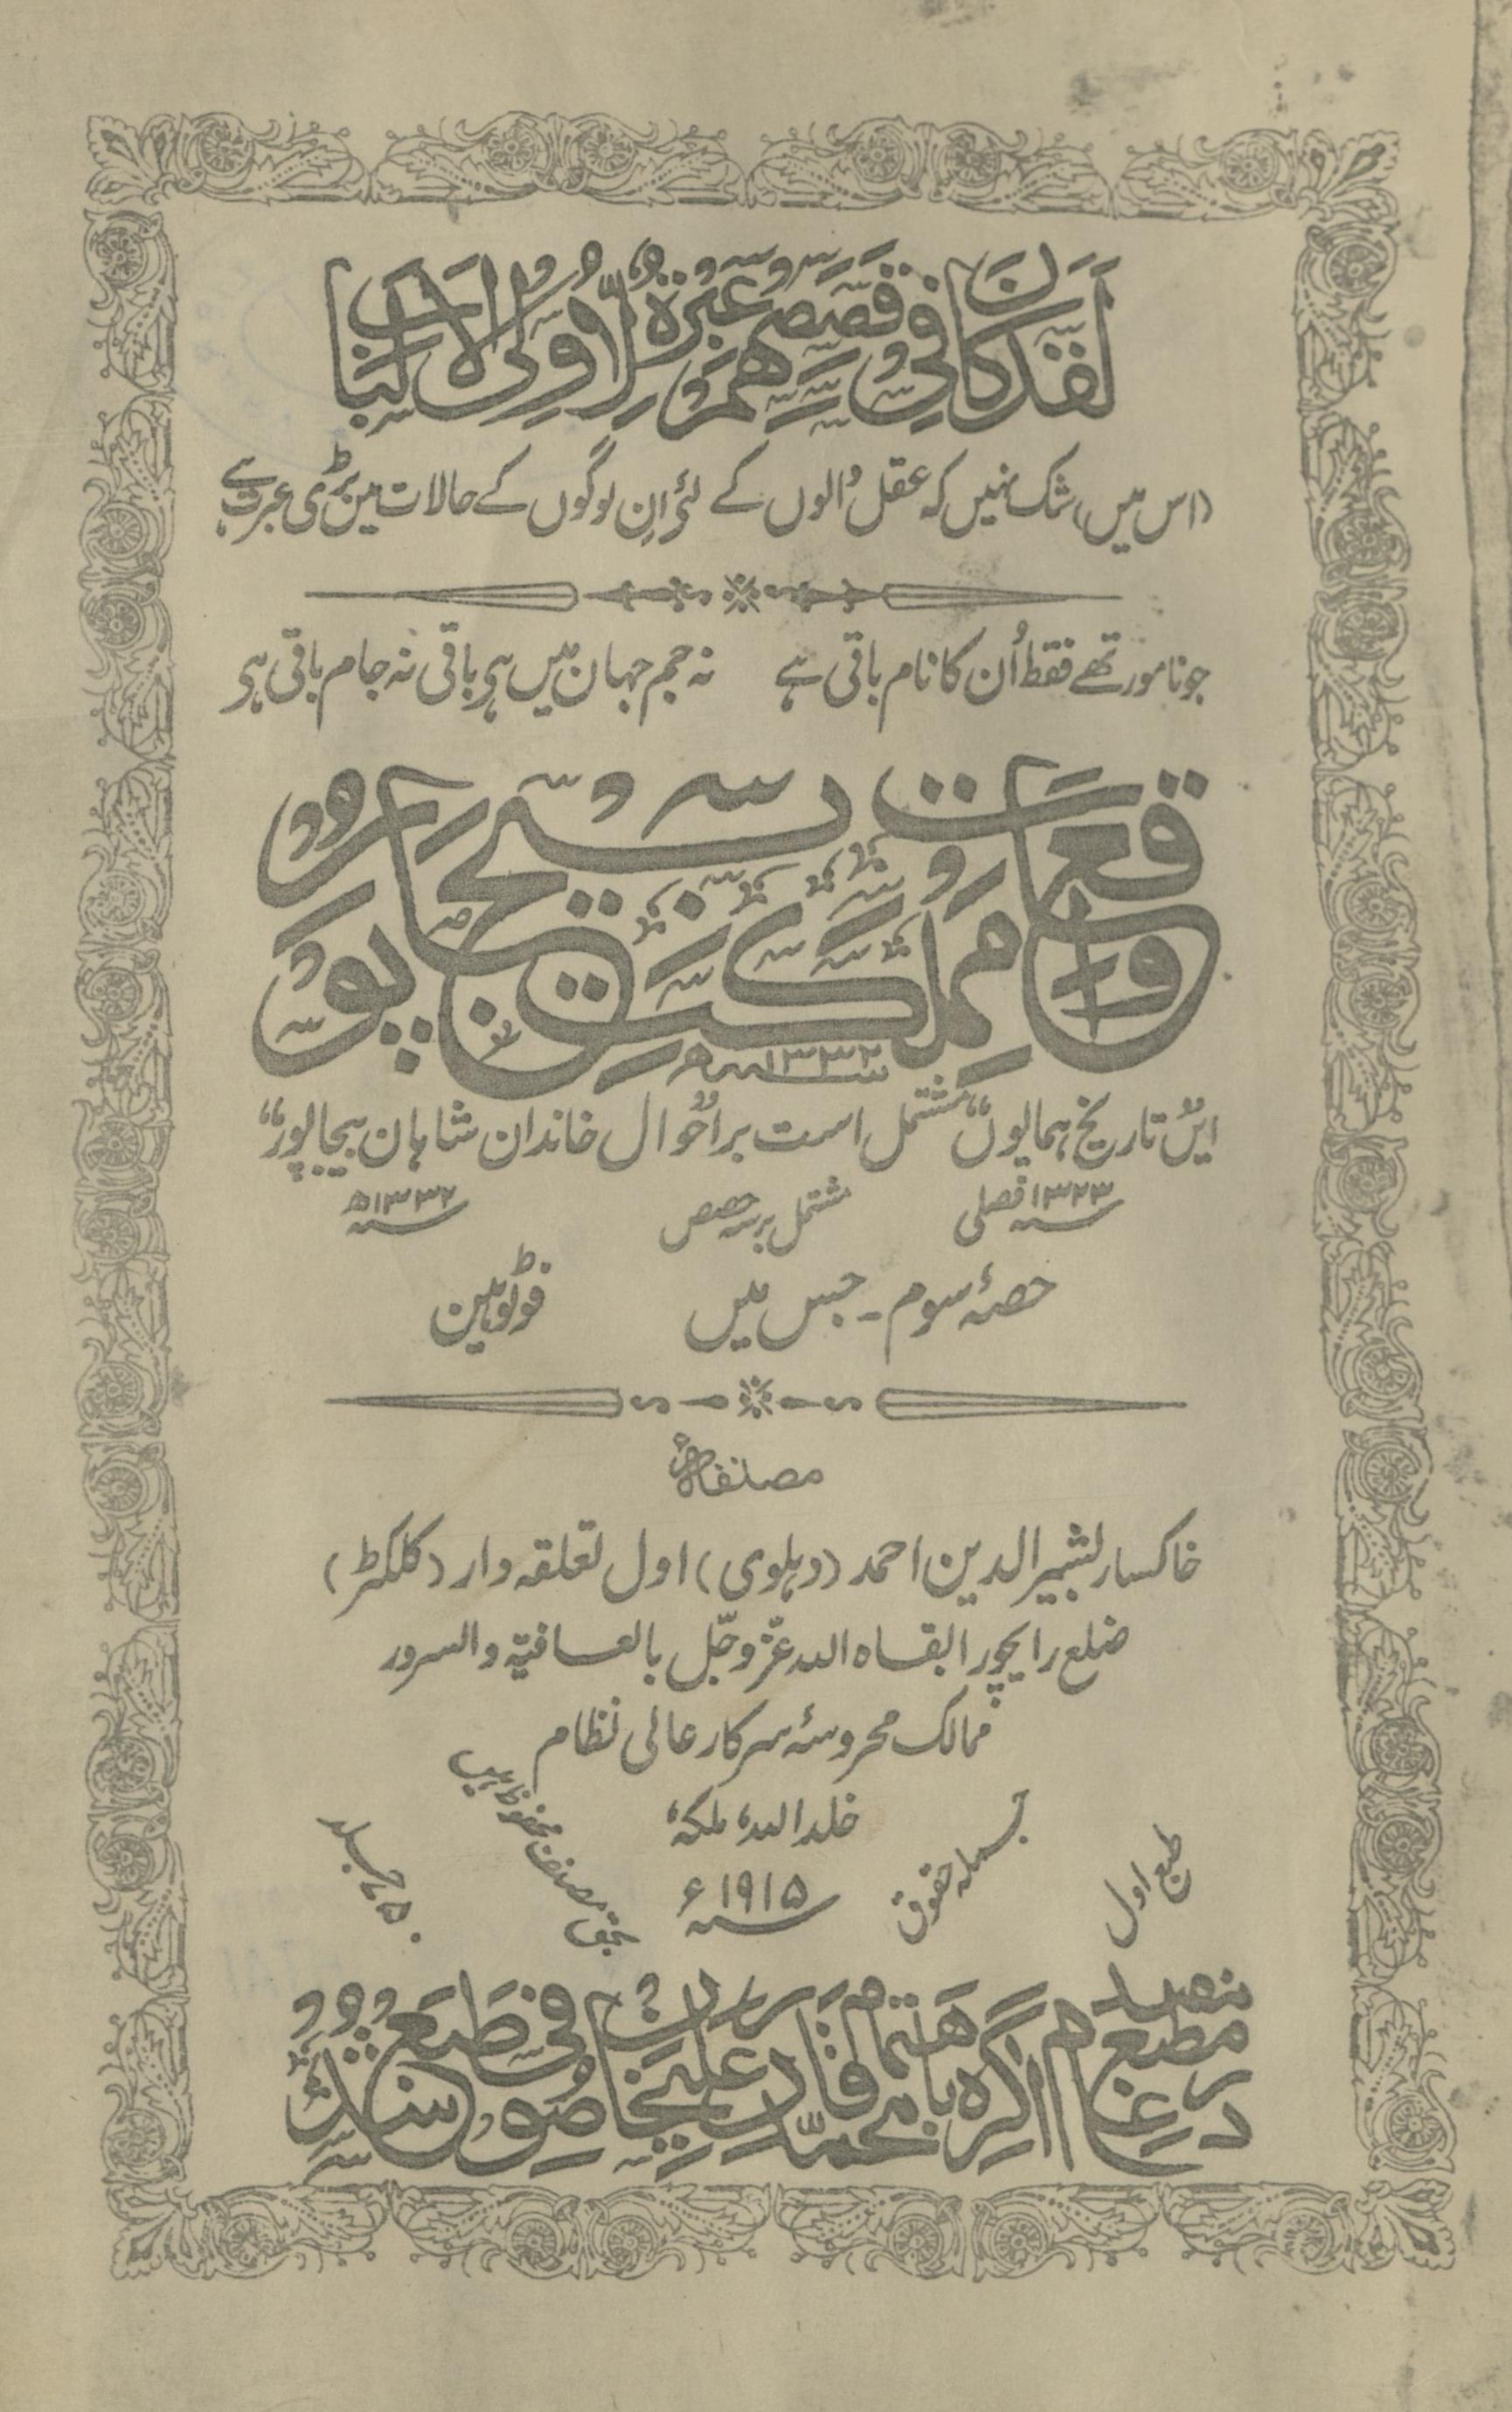 لَقَدْ كَانَ فِي قَصَصِهِمْ عِبْرَةٌ لِّاُولِی الْاَلْبَابِ
(اس میں) شک نہیں کہ عقل والوں کے لئے ان لوگوں کے حالات مین بڑی عبرت ہے
جو نامور تھے فقط اُن کا نام باقی ہے نہ جم جہان میں ہی باقی نہ جام باقی ہی
واقعات مملکت بیجاپور
۱۳۳۲ھ
ایں تاریخ ہمایوں مشتمل است بر احوال خاندان شاہان بیجاپور
۱۳۲۳ فصلی مشتمل بر سہ حصص ۱۳۳۲ھ
حصۂ سوم ۔ جس میں فوٹو ہین
مصنفہ
خاکسار بشیر الدین احمد (دہلوی) اول تعلقہ دار (کلکٹر)
ضلع رایچور ابقاہ اللہ عزّ وجّل بالعافیۃ والسرور
ممالک محروسۂ سرکار عالی نظام
خلد اللہ ملکہ
طبع اول
جملہ حقوق
۱۹۱۵ء
بحق مصنف محفوظ ہیں
جلد
در مطبع مفید عام آگرہ باہتمام محمد قادر علیخان صوفی طبع شد